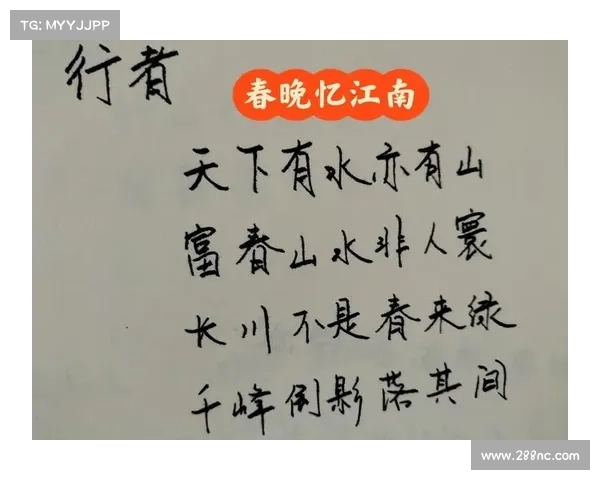 TG: MYYJJPP
行者
春晚忆江南
天下有水亦有山
富春山水非人寰
长川不是春来绿
千峰倒影落其间
www.288nc.com